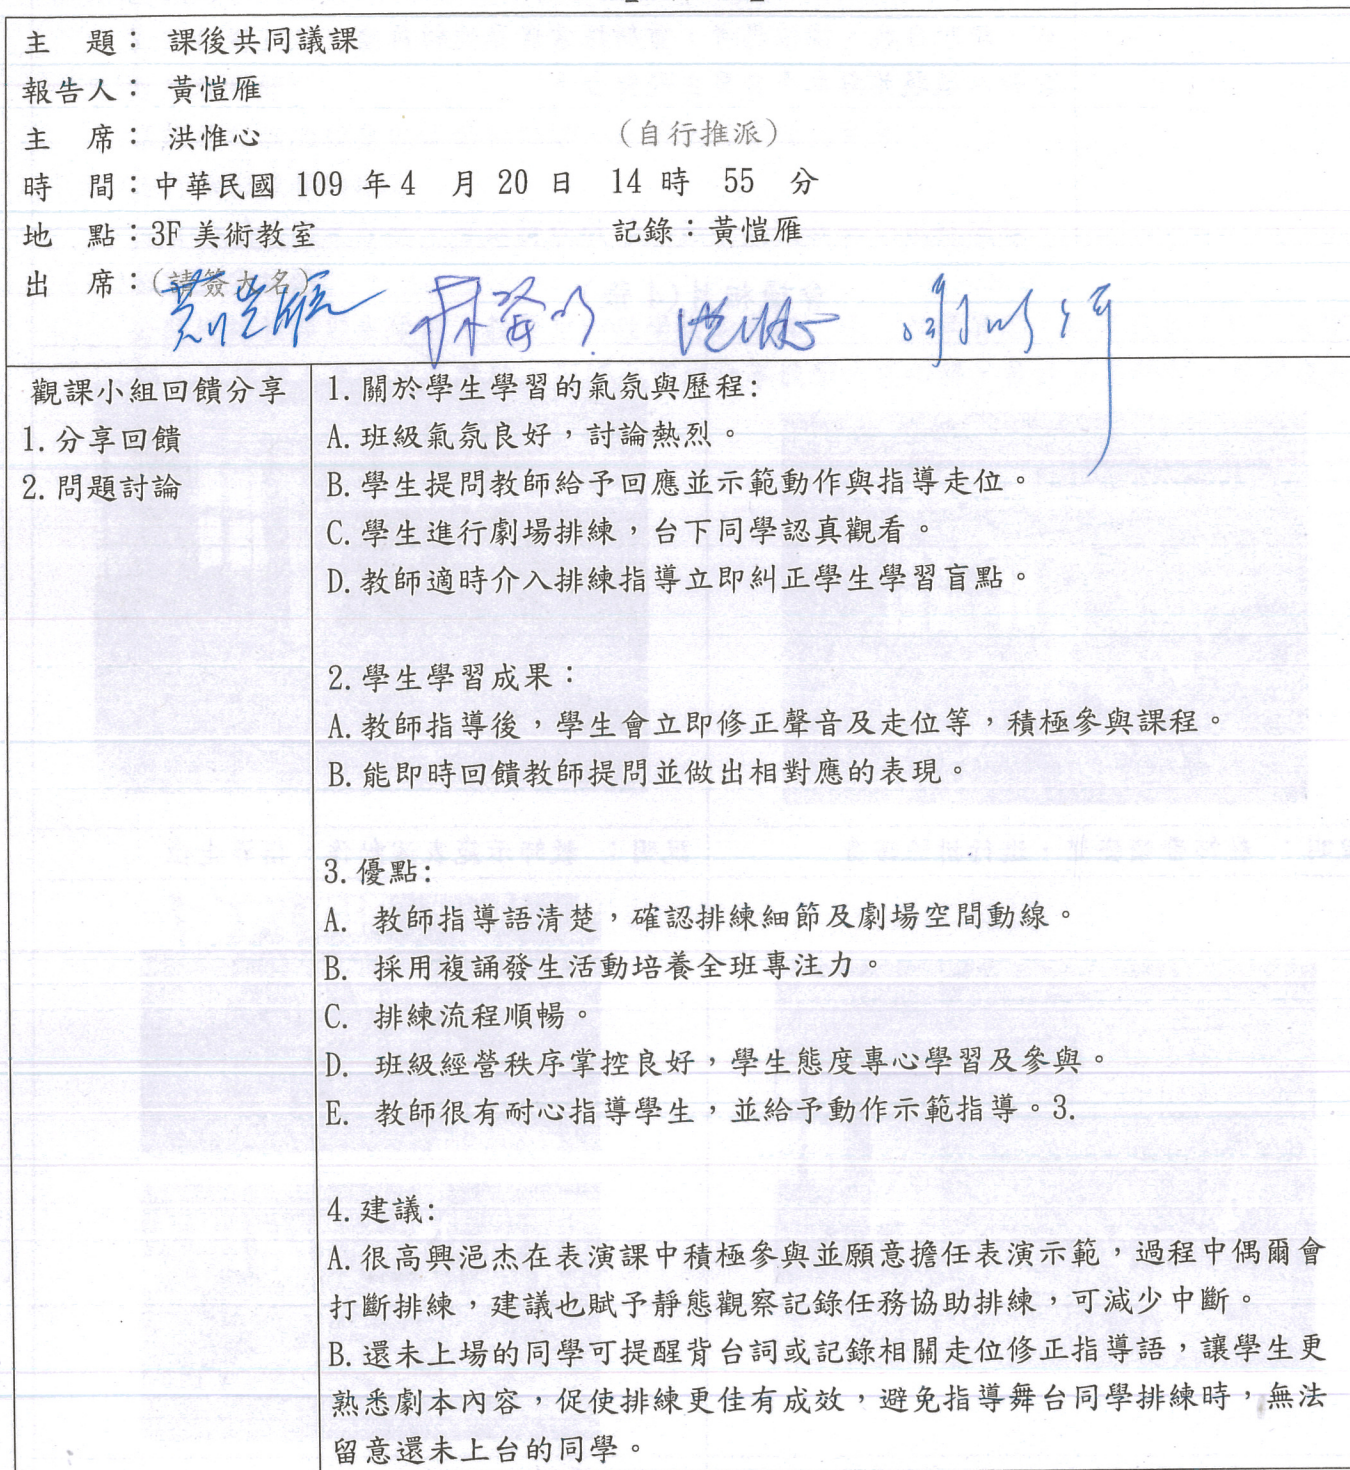 主　題： 課後共同議課
報告人： 黃愷雁
主　席： 洪惟心　（自行推派）
時　間：中華民國 109 年 4 月 20 日 14 時 55 分
地　點：3F 美術教室　記錄：黃愷雁
出　席：(請簽大名)
黃愷雁
觀課小組回饋分享
1.分享回饋
2.問題討論
1.關於學生學習的氣氛與歷程:
A.班級氣氛良好，討論熱烈。
B.學生提問教師給予回應並示範動作與指導走位。
C.學生進行劇場排練，台下同學認真觀看。
D.教師適時介入排練指導立即糾正學生學習盲點。
2.學生學習成果：
A.教師指導後，學生會立即修正聲音及走位等，積極參與課程。
B.能即時回饋教師提問並做出相對應的表現。
3.優點:
A. 教師指導語清楚，確認排練細節及劇場空間動線。
B. 採用複誦發生活動培養全班專注力。
C. 排練流程順暢。
D. 班級經營秩序掌控良好，學生態度專心學習及參與。
E. 教師很有耐心指導學生，並給予動作示範指導。3.
4.建議:
A.很高興浥杰在表演課中積極參與並願意擔任表演示範，過程中偶爾會
打斷排練，建議也賦予靜態觀察記錄任務協助排練，可減少中斷。
B.還未上場的同學可提醒背台詞或記錄相關走位修正指導語，讓學生更
熟悉劇本內容，促使排練更佳有成效，避免指導舞台同學排練時，無法
留意還未上台的同學。